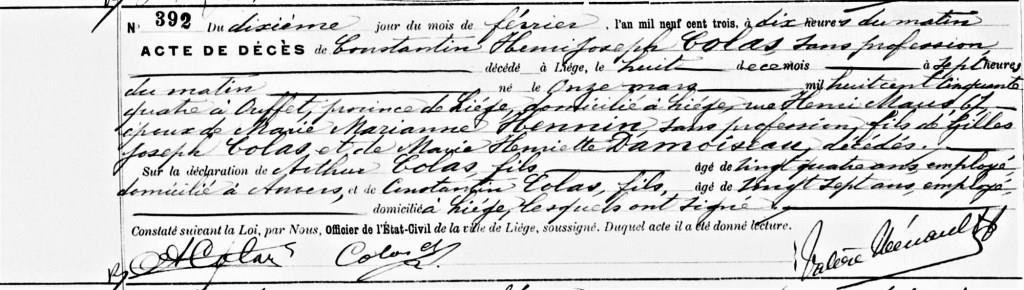 N° 392 Du dixième jour du mois de février, l'an mil neuf cent trois, à dix heures du matin
ACTE DE DÉCÈS de Constantin Henri Joseph Colas, sans profession,
décédé à Liége, le huit de ce mois à sept heures
du matin né le onze mars mil huit cent cinquante
quatre à Ouffet, province de Liége, domicilié à Liége, rue Henri Maus, 67
époux de Marie Marianne Hennin, sans profession, fils de Gilles
Joseph Colas, et de Marie Henriette Damoiseau, décédés.
Sur la déclaration de Arthur Colas, fils âgé de vingt quatre ans, employé
domicilié à Anvers, et de Constantin Colas, fils, âgé de vingt sept ans, employé
domicilié à Liége, lesquels ont signé.
Constaté suivant la Loi, par Nous, Officier de l'État-Civil de la ville de Liége, soussigné. Duquel acte il a été donné lecture.
A Colas Colas